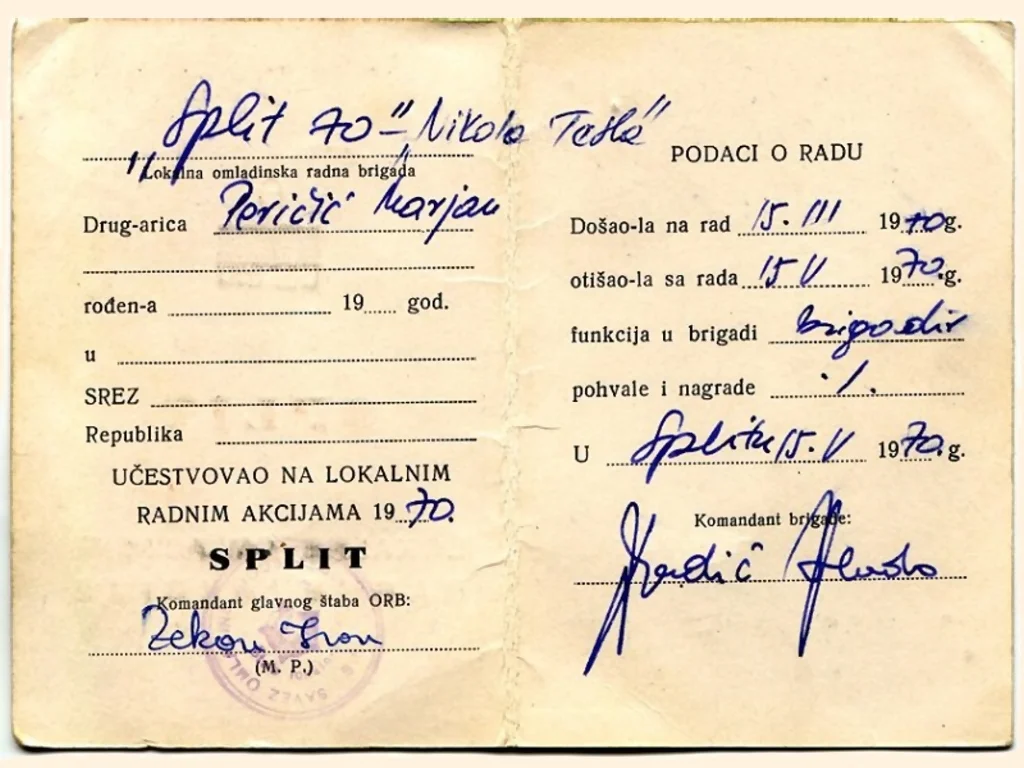 "Split 70" - "Nikola Tesla"
Lokalna omladinska radna brigada
Drug-arica Peričić Marjan
rođen-a 19 god.
u
SREZ
Republika
UČESTVOVAO NA LOKALNIM
RADNIM AKCIJAMA 1970.
SPLIT
Komandant glavnog štaba ORB:
(M. P.)
SAVEZ OML
PODACI O RADU
Došao-la na rad 15. III 1970 g.
otišao-la sa rada 15 V 1970. g.
funkcija u brigadi brigadir
pohvale i nagrade ./.
U Splitu 15. V 1970. g.
Komandant brigade: